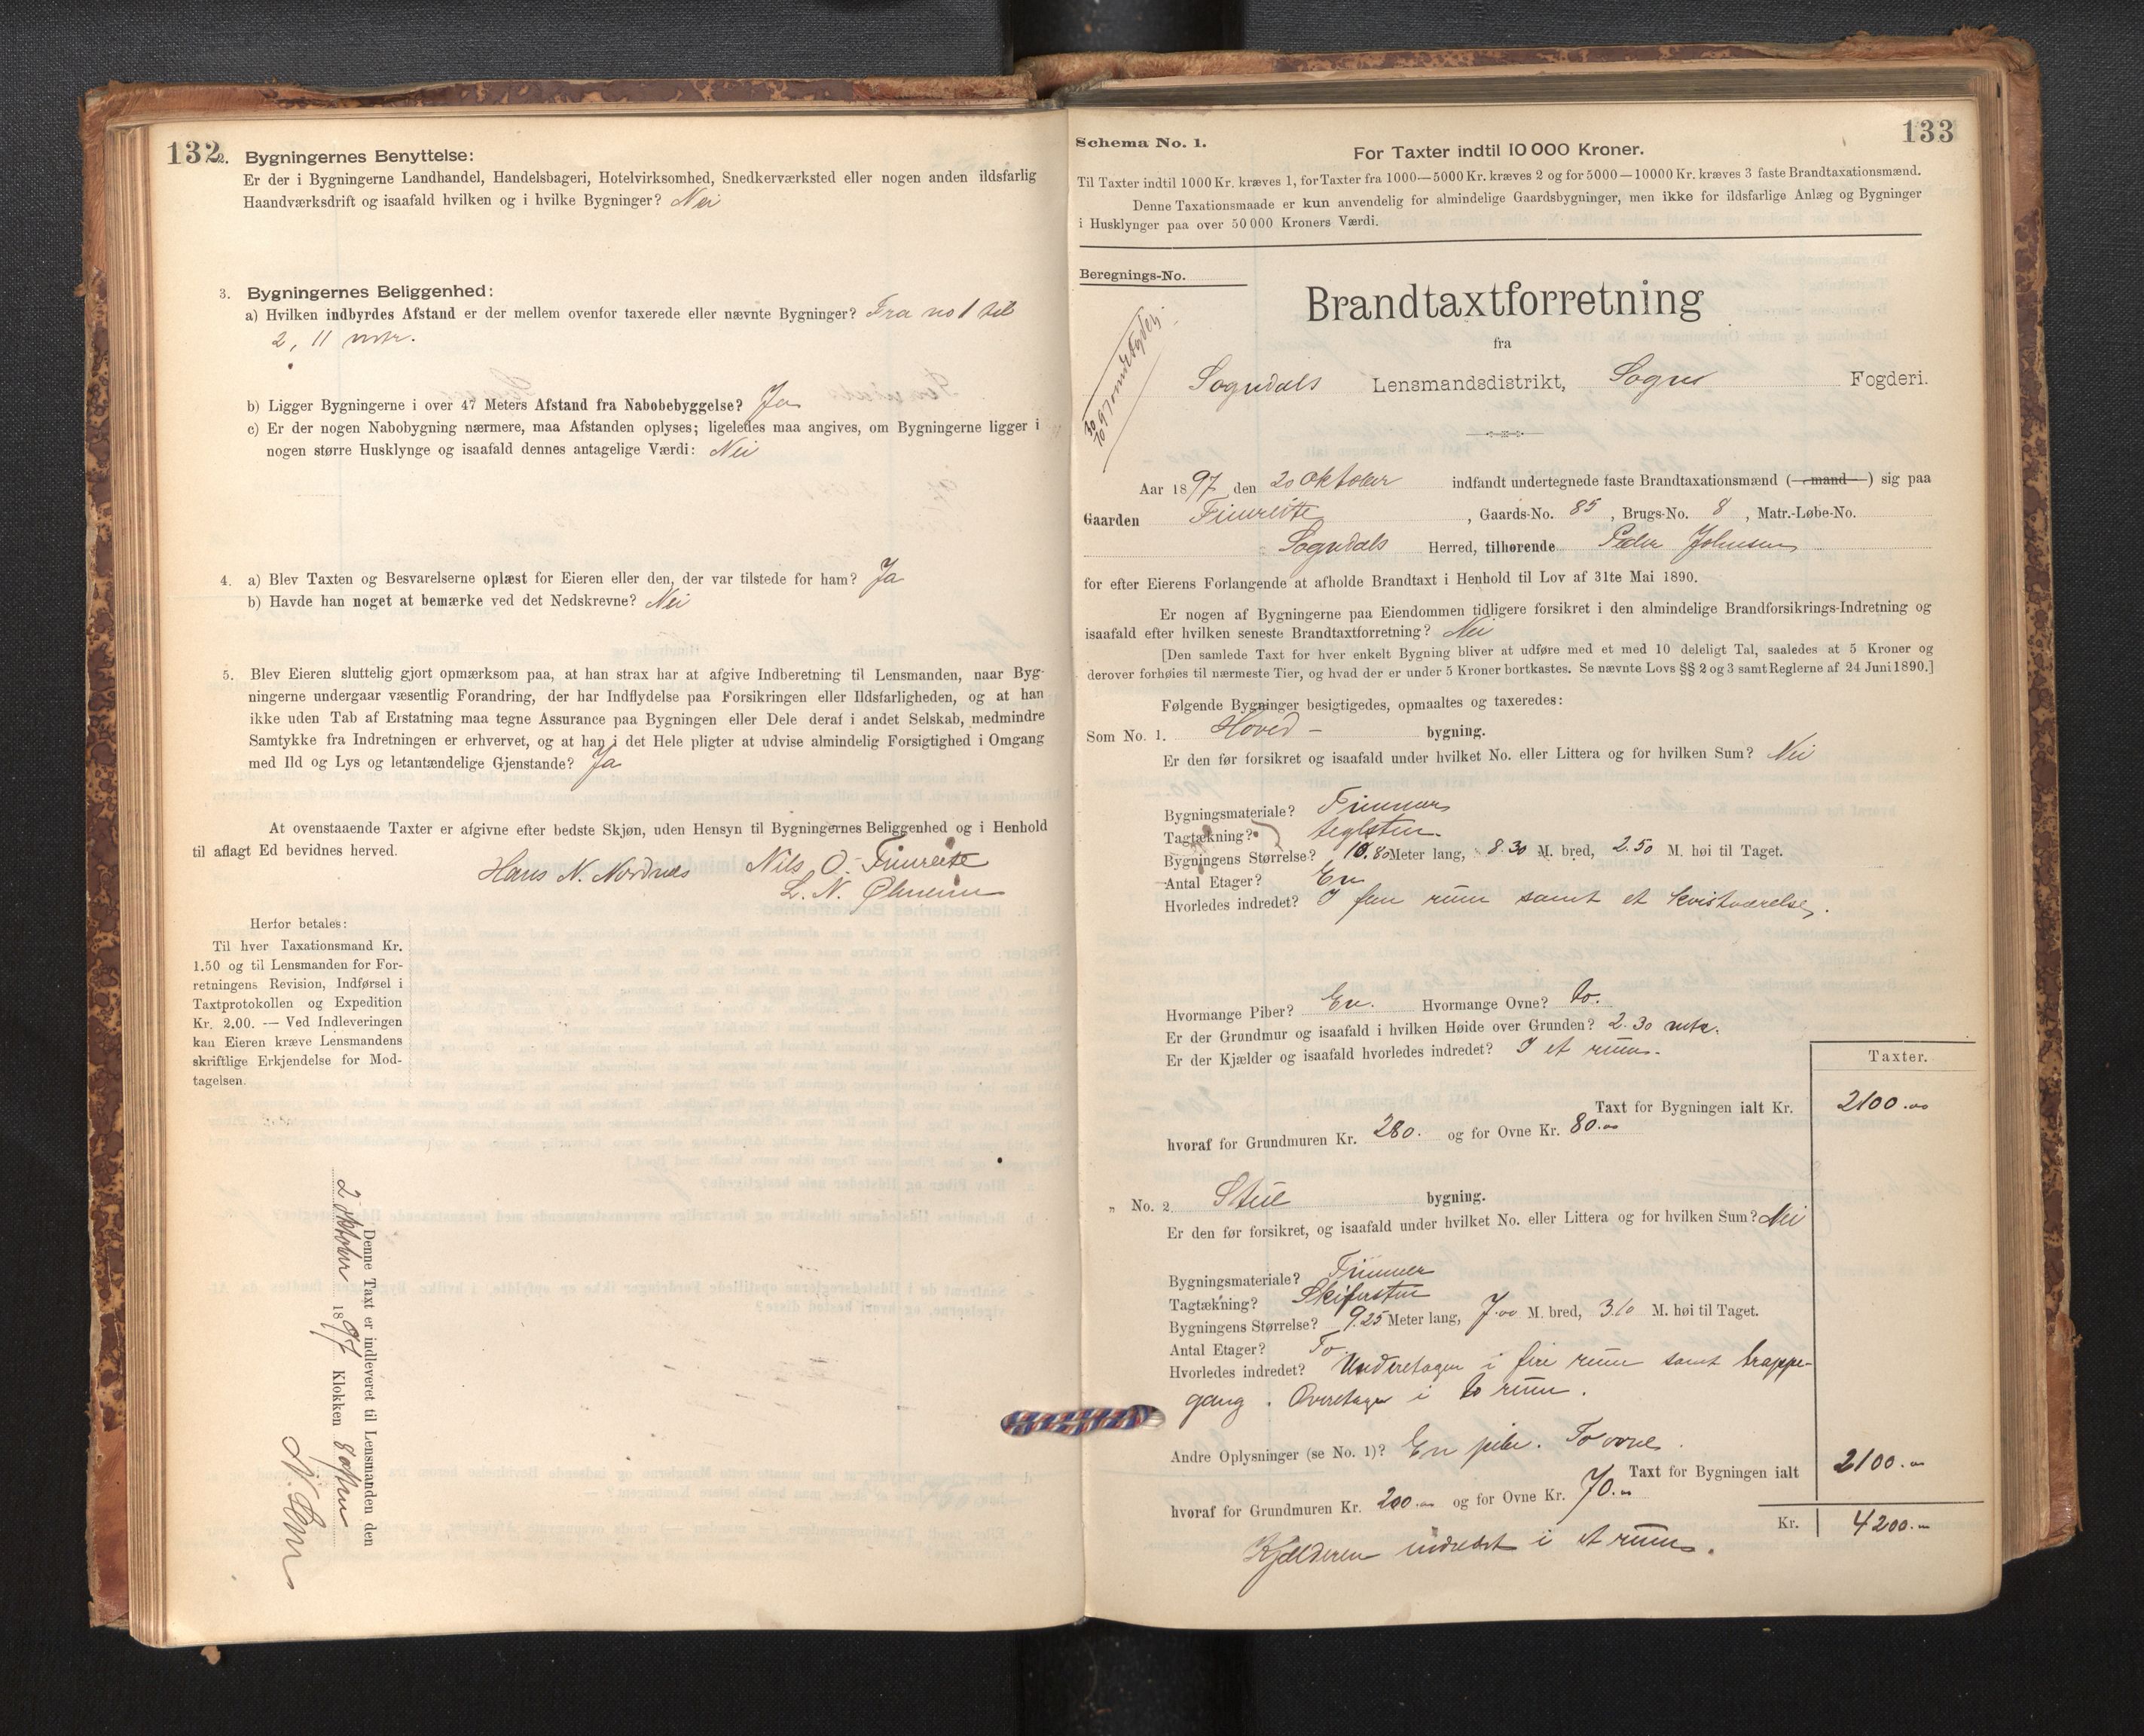 132
2. Bygningernes Benyttelse:
Er der i Bygningerne Landhandel, Handelsbageri, Hotelvirksomhed, Snedkerværksted eller nogen anden ildsfarlig
Haandværksdrift og isaafald hvilken og i hvilke Bygninger? Nei
3. Bygningernes Beliggenhed:
a) Hvilken indbyrdes Afstand er der mellem ovenfor taxerede eller nævnte Bygninger? Fra no 1 til
2, 11 mtr.
b) Ligger Bygningerne i over 47 Meters Afstand fra Nabobebyggelse? Ja
c) Er der nogen Nabobygning nærmere, maa Afstanden oplyses; ligeledes maa angives, om Bygningerne ligger i
nogen større Husklynge og isaafald dennes antagelige Værdi: Nei
4. a) Blev Taxten og Besvarelserne oplæst for Eieren eller den, der var tilstede for ham? Ja
b) Havde han noget at bemærke ved det Nedskrevne? Nei
5. Blev Eieren sluttelig gjort opmærksom paa, at han strax har at afgive Indberetning til Lensmanden, naar Byg-
ningerne undergaar væsentlig Forandring, der har Indflydelse paa Forsikringen eller Ildsfarligheden, og at han
ikke uden Tab af Erstatning maa tegne Assurance paa Bygningen eller Dele deraf i andet Selskab, medmindre
Samtykke fra Indretningen er erhvervet, og at han i det Hele pligter at udvise almindelig Forsigtighed i Omgang
med Ild og Lys og letantændelige Gjenstande? Ja
At ovenstaaende Taxter er afgivne efter bedste Skjøn, uden Hensyn til Bygningernes Beliggenhed og i Henhold
til aflagt Ed bevidnes herved.
Hans N. Nordnes Nils O. Fimreite
L. N.
Herfor betales:
Til hver Taxationsmand Kr.
1.50 og til Lensmanden for For-
retningens Revision, Indførsel i
Taxtprotokollen og Expedition
Kr. 2.00. — Ved Indleveringen
kan Eieren kræve Lensmandens
skriftlige Erkjendelse for Mod-
tagelsen.
Denne Taxt er indleveret til Lensmanden den
2 oktober 1897 Klokken 8 aften
133
Schema No. 1.
For Taxter indtil 10 000 Kroner.
Til Taxter indtil 1000 Kr. kræves 1, for Taxter fra 1000—5000 Kr. kræves 2 og for 5000—10000 Kr. kræves 3 faste Brandtaxationsmænd.
Denne Taxationsmaade er kun anvendelig for almindelige Gaardsbygninger, men ikke for ildsfarlige Anlæg og Bygninger
i Husklynger paa over 50 000 Kroners Værdi.
Beregnings-No.
Brandtaxtforretning
fra
Sogndals Lensmandsdistrikt, Sogns Fogderi.
Aar 1897, den 20 oktober indfandt undertegnede faste Brandtaxationsmænd (—mand—) sig paa
Gaarden Fimreite, Gaards-No. 85, Brugs-No. 8, Matr.-Løbe-No.
Sogndals Herred, tilhørende Peder Johnsen
for efter Eierens Forlangende at afholde Brandtaxt i Henhold til Lov af 31te Mai 1890.
Er nogen af Bygningerne paa Eiendommen tidligere forsikret i den almindelige Brandforsikrings-Indretning og
isaafald efter hvilken seneste Brandtaxtforretning? Nei
[Den samlede Taxt for hver enkelt Bygning bliver at udføre med et med 10 deleligt Tal, saaledes at 5 Kroner og
derover forhøies til nærmeste Tier, og hvad der er under 5 Kroner bortkastes. Se nævnte Lovs §§ 2 og 3 samt Reglerne af 24 Juni 1890.]
Følgende Bygninger besigtigedes, opmaaltes og taxeredes:
Som No. 1. Hoved- bygning.
Er den før forsikret og isaafald under hvilket No. eller Littera og for hvilken Sum? Nei
Bygningsmateriale? Timmer
Tagtækning? teglsten.
Bygningens Størrelse? 10.80 Meter lang, 8.30 M. bred, 2.50 M. høi til Taget.
Antal Etager? En
Hvorledes indredet? I fem rum samt et kvistværelse.
Hvormange Piber? En. Hvormange Ovne? to.
Er der Grundmur og isaafald i hvilken Høide over Grunden? 2.30 mtr.
Er der Kjælder og isaafald hvorledes indredet? I et rum.
Taxter.
Taxt for Bygningen ialt Kr. 2100.00
hvoraf for Grundmuren Kr. 280. og for Ovne Kr. 80.00
„ No. 2 Stue bygning.
Er den før forsikret, og isaafald under hvilket No. eller Littera og for hvilken Sum? Nei
Bygningsmateriale? Timmer
Tagtækning? Skifersten
Bygningens Størrelse? 9.25 Meter lang, 7.00 M. bred, 3.10 M. høi til Taget.
Antal Etager? To.
Hvorledes indredet? Underetagen i fire rum samt trappe-
gang. Overetagen i to rum.
Andre Oplysninger (se No. 1)? En pibe. To ovne.
Taxt for Bygningen ialt 2100.00
hvoraf for Grundmuren Kr. 200.00 og for Ovne Kr. 70.00
Kr. 4200.00
Kjælderen indredet i et rum.